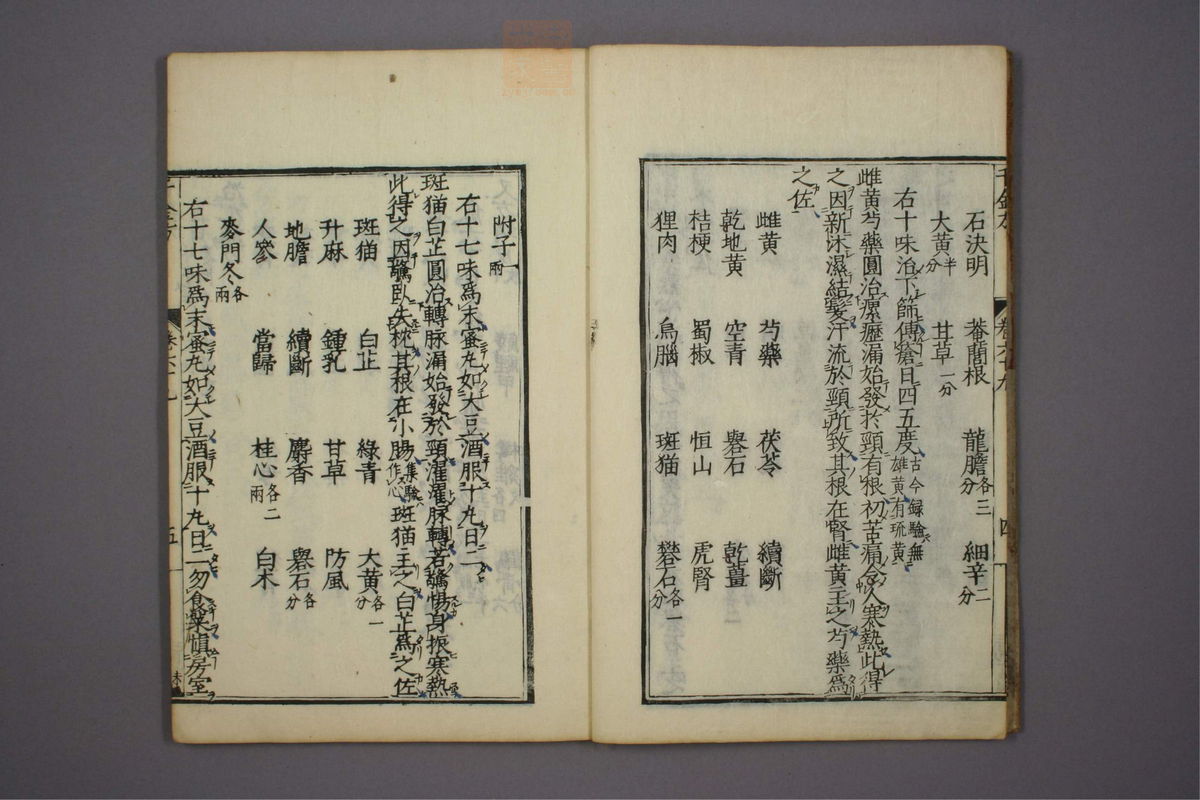 石決明 菴䕡根 龍膽各三分 細辛二分
大黃半分 甘草一分
右十味治下篩傅瘡日四五度古今録驗無雄黃有琉黃
雌黃芍藥圓治瘰癧漏始發於頸有根初苦痛令人寒熱此得
之因新沐濕結髮汗流於頸所致其根在腎雌黃主之芍藥爲
之佐
雌黃 芍藥 茯苓 續斷
乾地黃 空青 礜石 乾薑
桔梗 蜀椒 恒山 虎腎
狸肉 烏腦 斑猫 礬石各一分
卷六十九 四
附子一兩
右十七味爲末蜜丸如大豆酒服十丸日二
斑猫白芷圓治轉脉漏始發於頸濯濯脉轉苦驚惕身振寒熱
此得之因驚臥失枕其根在小腸集驗作心斑猫主之白芷爲之佐
斑猫 白芷 綠青 大黃各一分
升麻 鍾乳 甘草 防風
地膽 續斷 麝香 礜石各分
人參 當歸 桂心各二兩 白朮
麥門冬各兩
右十七味爲末蜜丸如大豆酒服十丸日二勿食菜愼房室
五